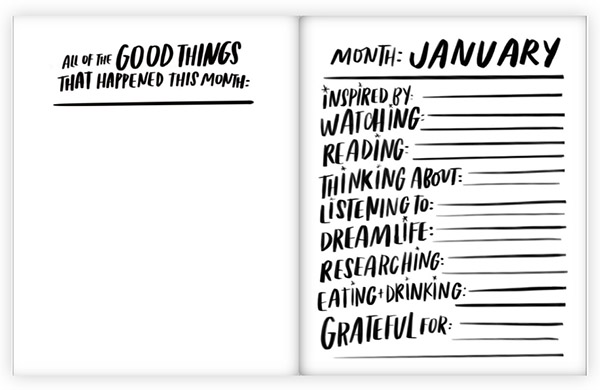 ALL OF THE GOOD THINGS
THAT HAPPENED THIS MONTH:
MONTH: JANUARY
INSPIRED BY:
WATCHING:
READING:
THINKING ABOUT:
LISTENING TO:
DREAM LIFE:
RESEARCHING:
EATING+DRINKING:
GRATEFUL FOR: